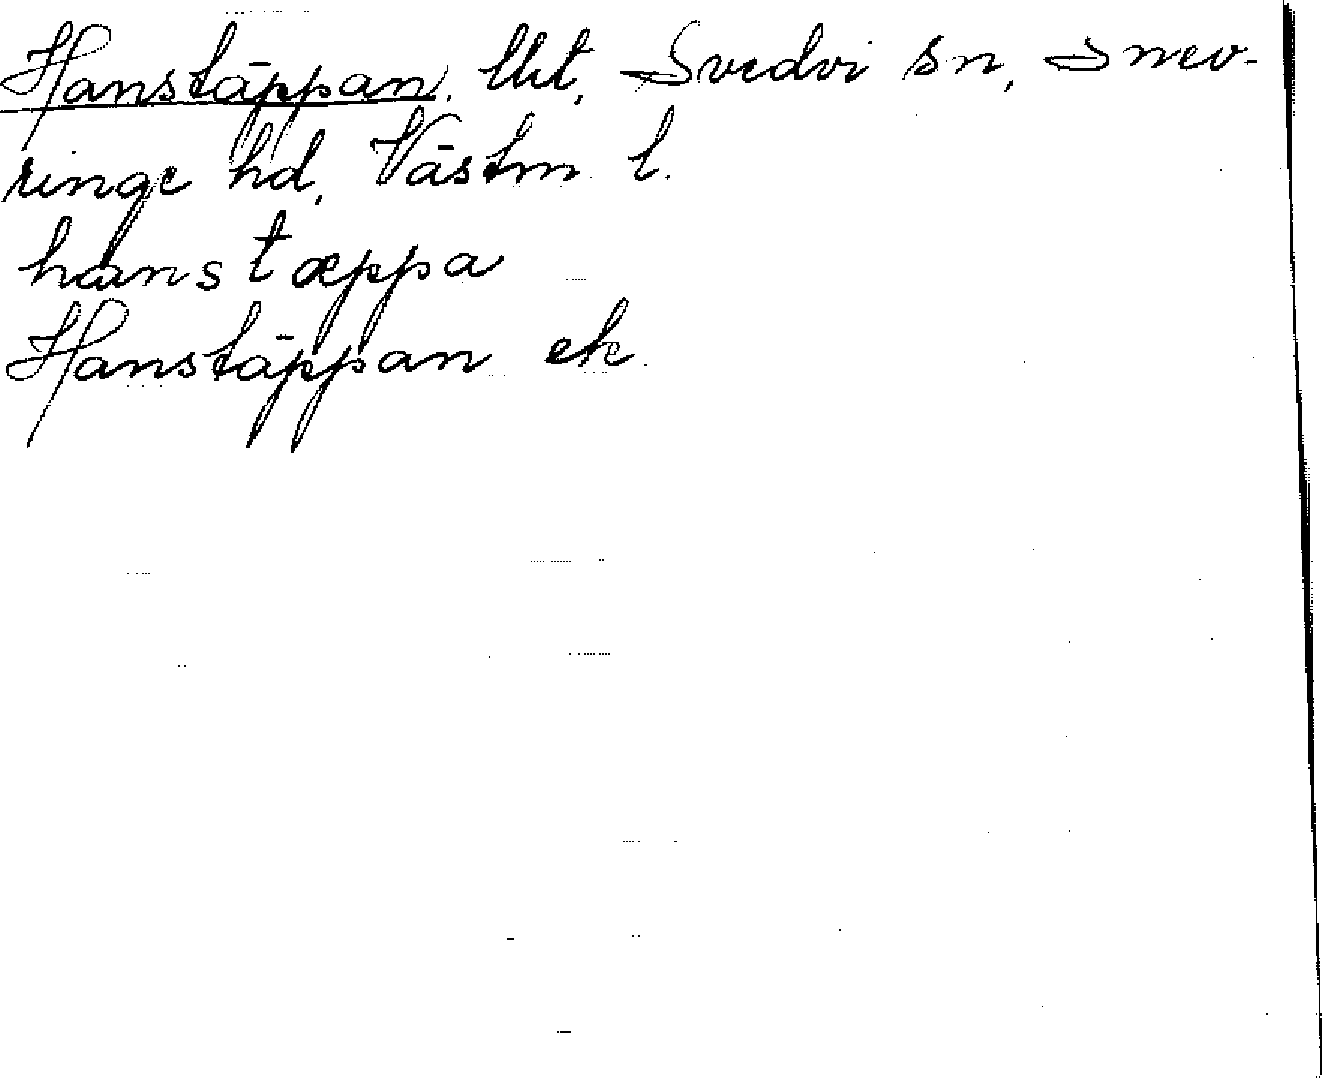 Hanstäppan, lht, Svedvi sn, Snev-
ringe hd, Västm l.
hanstæppa
Hanstäppan ek.